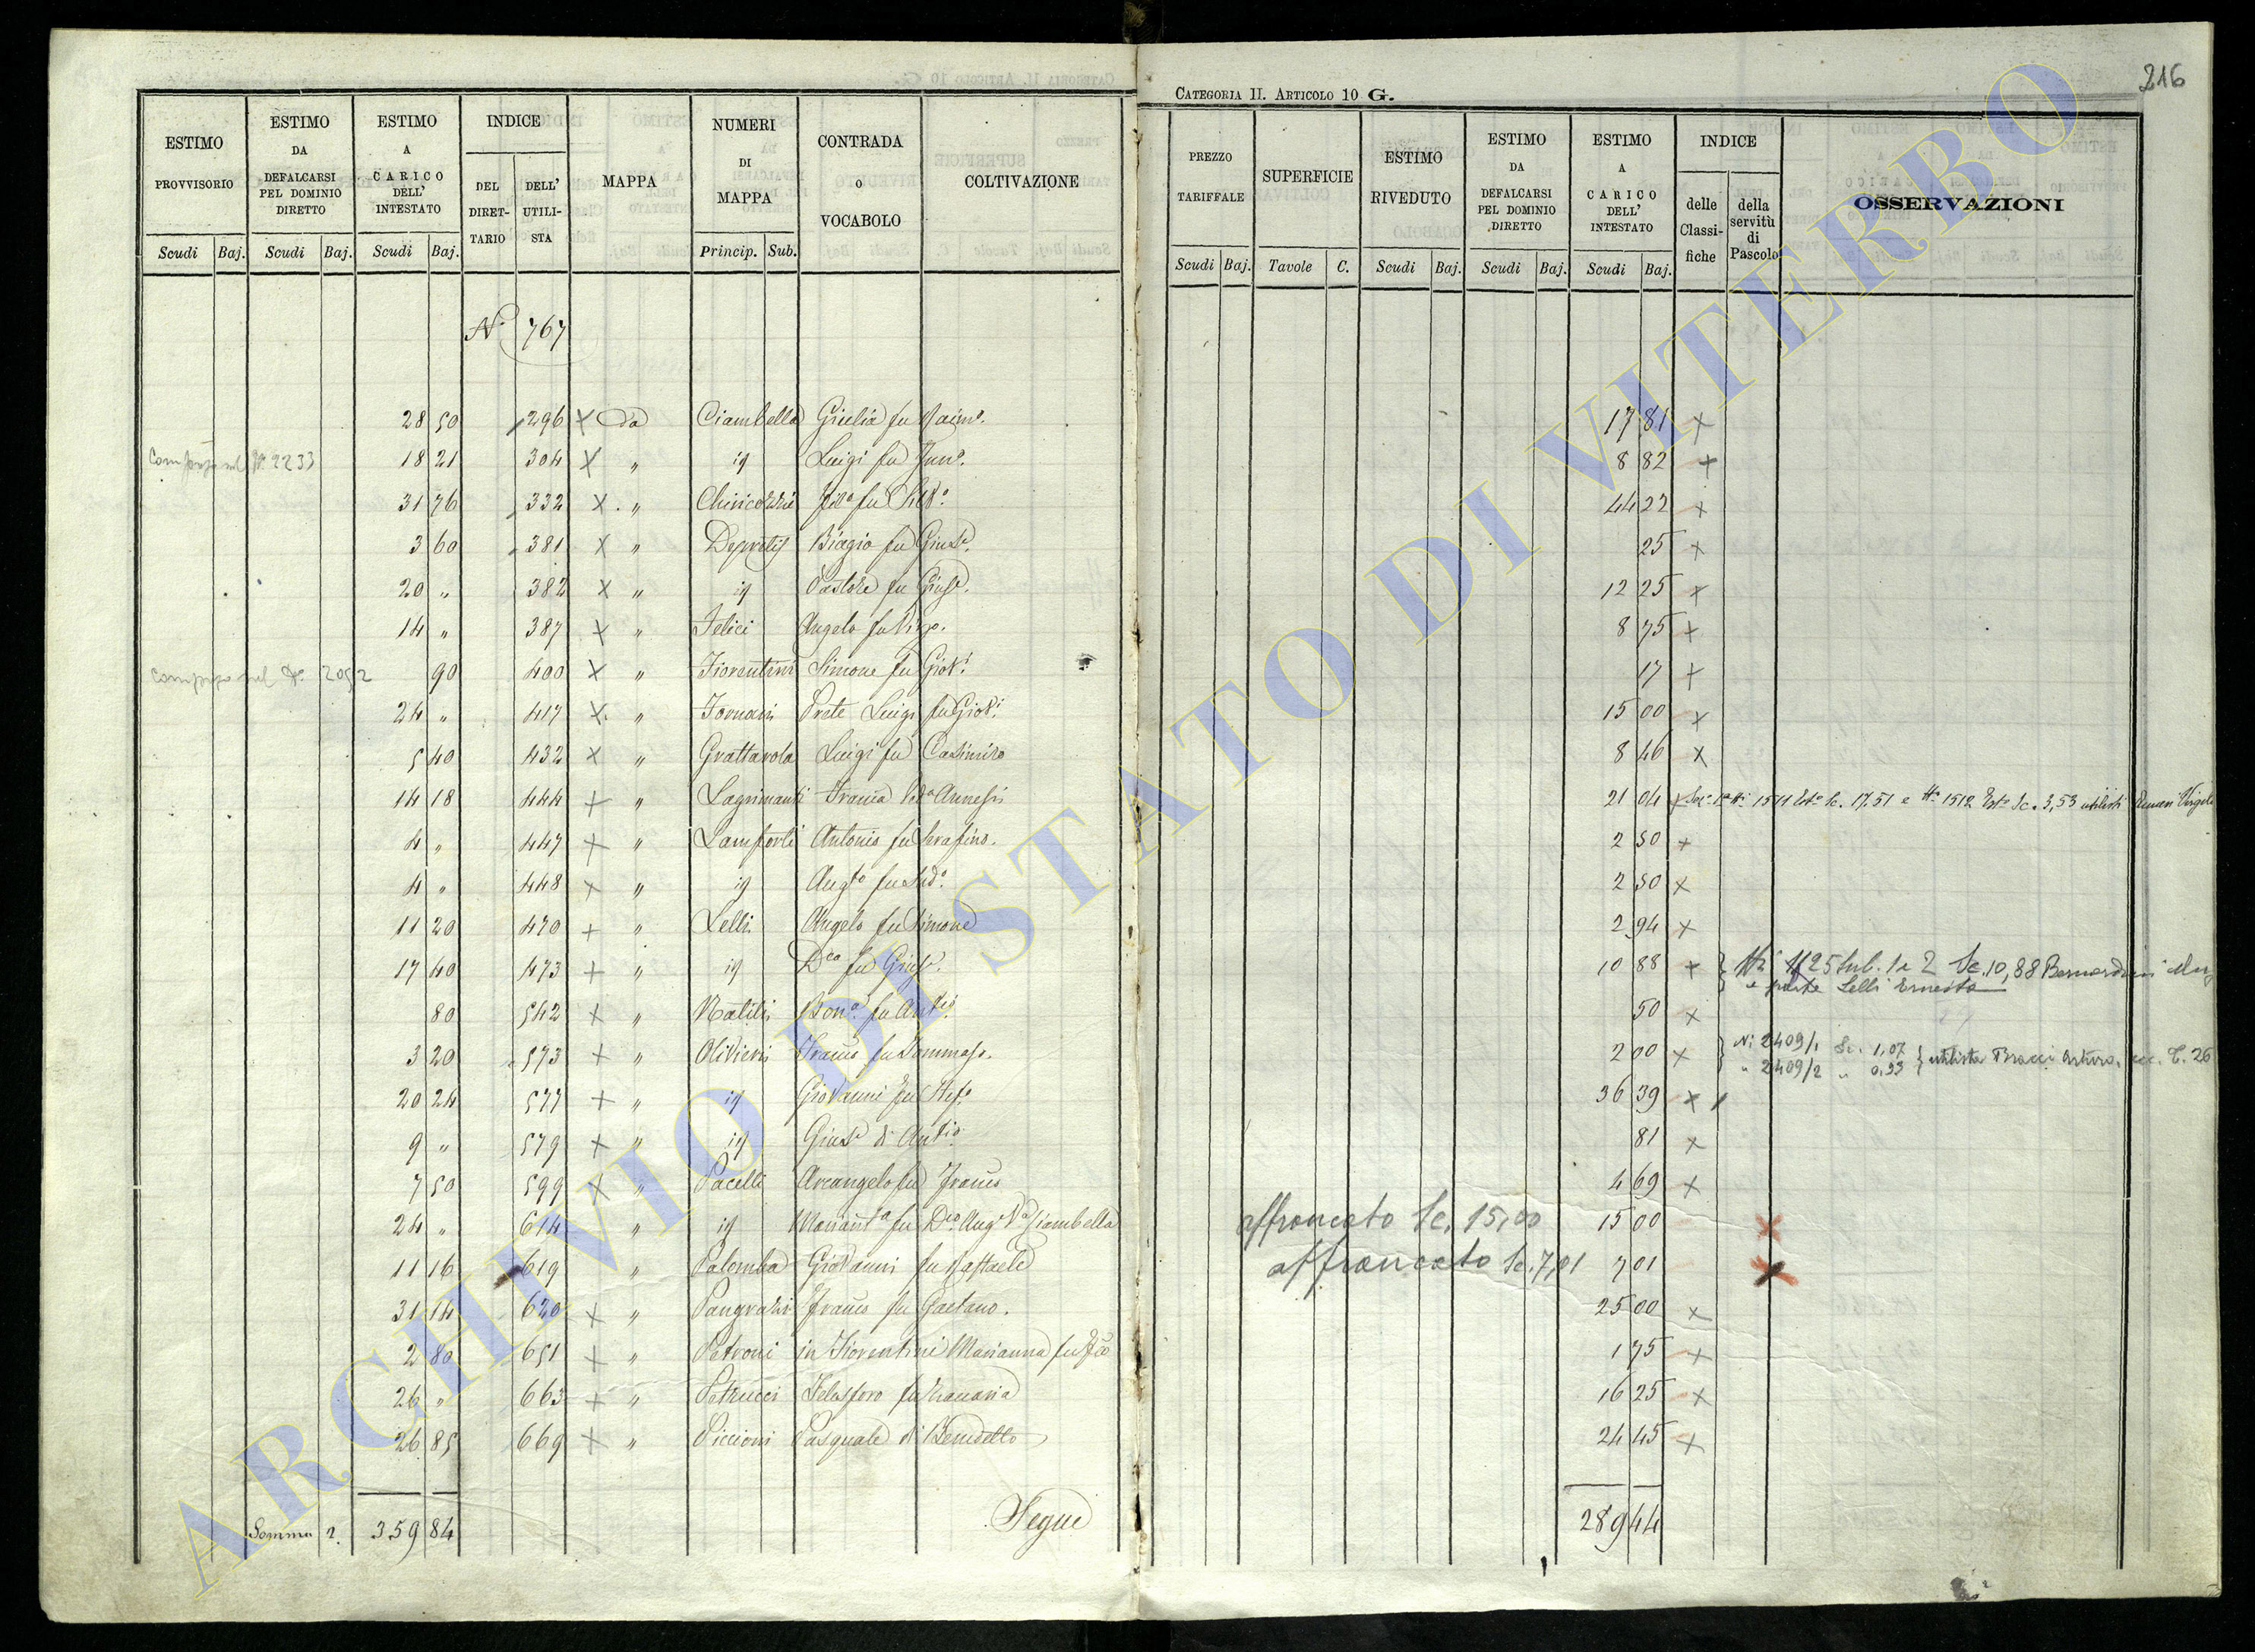 216
CATEGORIA II. ARTICOLO 10 G.
ESTIMO PROVVISORIO
ESTIMO DA DEFALCARSI PEL DOMINIO DIRETTO
ESTIMO A CARICO DELL' INTESTATO
INDICE
DEL DIRETTARIO
DELL' UTILISTA
MAPPA
NUMERI DI MAPPA
CONTRADA O VOCABOLO
COLTIVAZIONE
Scudi Baj. Scudi Baj. Scudi Baj. Princip. Sub.
PREZZO TARIFFALE
SUPERFICIE
ESTIMO RIVEDUTO
ESTIMO DA DEFALCARSI PEL DOMINIO DIRETTO
ESTIMO A CARICO DELL' INTESTATO
INDICE
delle Classifiche
della servitù di Pascolo
OSSERVAZIONI
Scudi Baj. Tavole C. Scudi Baj. Scudi Baj. Scudi Baj.
N° 767
28 50 296 × Da Ciambella Giulia fu 17 81 ×
2233 18 21 304 × " id Luigi fu 8 82 ×
31 76 332 × " fu 44 22 ×
3 60 381 × " Depretis Biagio fu Gius.e 25 ×
20 " 382 × " id Pastore fu Gius.e 12 25 ×
14 " 387 × " Felici Angelo fu 8 75 ×
90 400 × " Fiorentini Simone fu Giov.i 17 ×
24 " 417 × " Fornari Prete Luigi fu Giov.i 15 00 ×
5 40 432 × " Grattarola Luigi fu Casimiro 8 46 ×
14 18 444 × " Lagrimanti 21 04 × 1511 Est.o Sc. 17.51 e N.o 1512 Est.o Sc. 3,53
4 " 447 × " Antonio fu Serafino. 2 50 ×
4 " 448 × " id fu 2 50 ×
11 20 470 × " Lelli Angelo fu Simone 2 94 ×
17 40 473 × " id D.co fu Gius.e 10 88 × 1125 sub. 1 e 2 Sc. 10,88 Bernardini
e parte Lelli Ernesto
80 542 × " Natili fu Ant.o 50 ×
3 20 573 × " Olivieri fu Tommaso. 2 00 × Ni 2409/1 Sc. 1,07
" 2409/2 " 0,93 } utilista Bracci Arturo. C. 26
20 24 577 × " id Giovanni fu Stef.o 36 39 ×
9 " 579 × " id Gius.e di Ant.o 81 ×
7 50 599 × " Pacelli Arcangelo fu 4 69 ×
24 " 614 " id fu D.co Ciambella affrancato Sc. 15,00 15 00 ×
11 16 619 " Palomba Giovanni fu Raffaele affrancato Sc. 7,01 7 01 ×
31 14 620 × " Pangrazi fu Gaetano. 25 00 ×
2 80 651 × " Petroni in Fiorentini Marianna fu 1 75 ×
26 " 663 × " Petrucci Telesforo fu Zaccaria 16 25 ×
26 85 669 × " Piccioni Pasquale di Benedetto 24 45 ×
Segue
Somma 359 84
289 44
ARCHIVIO DI STATO DI VITERBO